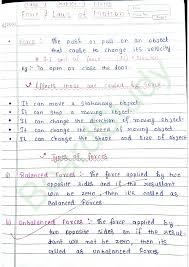 Force & Laws of Motion
Force : the push or pull on an object
that cause to change its velocity
Eg : To open or close the door
Effects those are caused by force
• It can move a stationary object
• It can stop a moving object
• It can change the direction of moving object
• It can change the speed of moving object
• It can change the shape and size of object
Types of Forces
a) Balanced Forces : the force applied by two
opposite sides and if the resultant
will be zero, then it's called as
Balanced Forces
b) Unbalanced Forces : the force applied by
two opposite sides and if the resul-
tant will not be zero, then its
called as unbalanced Forces